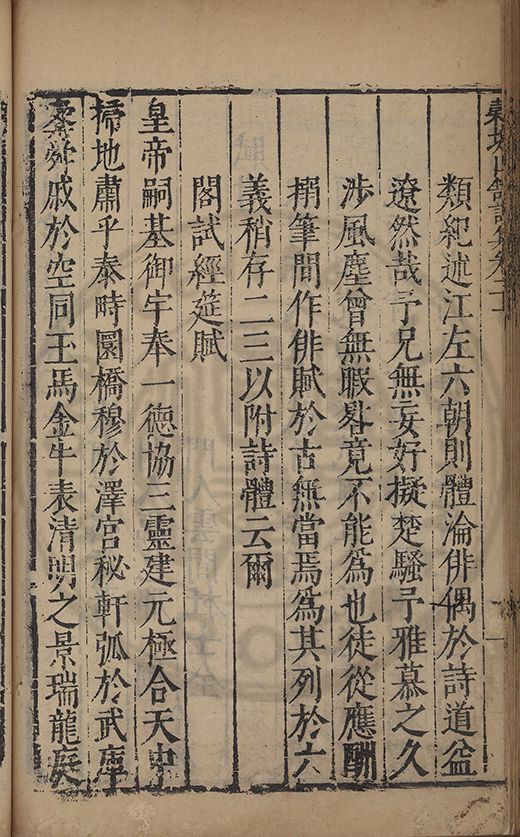 穀城山館詩集卷二十
類紀述江左六朝則體淪俳偶於詩道益
遼然哉予兄無妄好擬楚騷予雅慕之久
涉風塵曾無暇晷竟不能爲也徒從應酬
筆間作俳賦於古無當焉爲其列於六
義稍存二三以附詩體云爾
閣試經筵賦
皇帝嗣基御宇奉一德協三靈建元極合天中
掃地肅乎泰畤圜橋穆於澤宮秘軒弧於武庫
舜戚於空同玉馬金牛表清明之景瑞龍庭